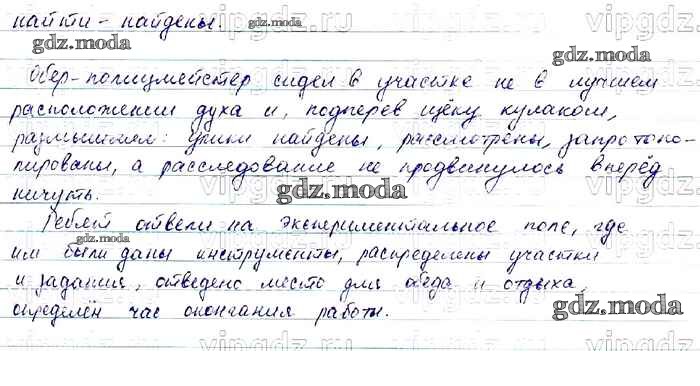 найти - найдены.
Обер-полицмейстер сидел в участке не в лучшем
расположении духа и, подперев щёку кулаком,
размышлял: улики найдены, рассмотрены, запротоко-
лированы, а расследование не продвинулось вперёд
ничуть.
Ребят отвели на экспериментальное поле, где
им были даны инструменты, распределены участки
и задания, отведено место для обеда и отдыха,
определён час окончания работы.
gdz.moda
gdz.moda
gdz.moda
gdz.moda
gdz.moda
gdz.moda